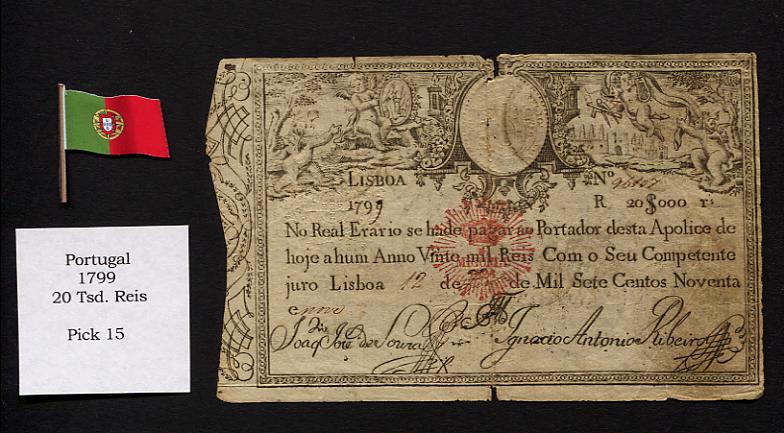 Portugal
1799
20 Tsd. Reis
Pick 15
LISBOA Nº
1799 R 20$000 rˢ
No Real Erario se hade pagar ao Portador desta Apolice de
hoje a hum Anno Vinte mil Reis Com o Seu Competente
juro Lisboa 12 de de Mil Sete Centos Noventa
e nove
Joaqᵐ José de Souza Ignacio Antonio Ribeiro